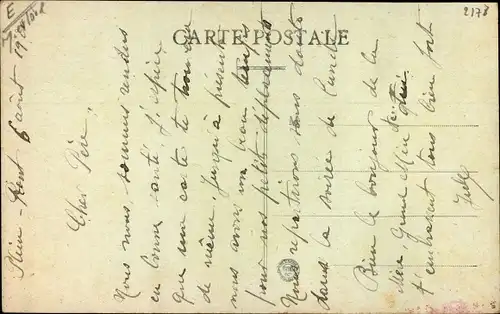 E
2178
CARTE POSTALE
Plein - 6 août 19
Cher Père,
Nous nous sommes rendus
en bonne santé. J'espère
que ma carte te trouvera
de même. Jusqu'à présent
nous avons un bon temps
pour nos petits déplacements
Nous repartirons sans doute
dans la soirée de lundi
Bien le bonjour de la
part
t'embrassent tous bien fort
Jules